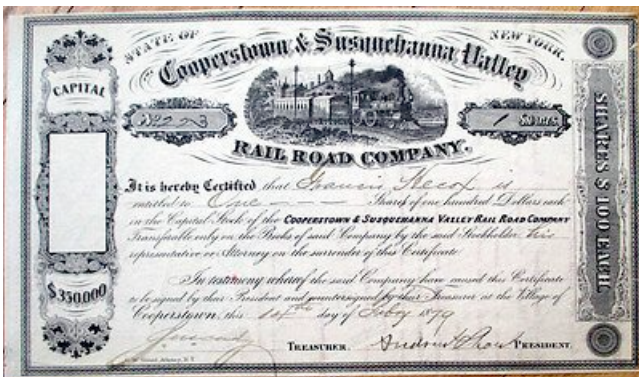 STATE OF NEW YORK.
Cooperstown & Susquehanna Valley
CAPITAL
1 SHARES.
RAIL ROAD COMPANY.
SHARES $100 EACH.
It is hereby Certified that Francis Hecox is
entitled to One Shares of one hundred Dollars each
in the Capital Stock of the COOPERSTOWN & SUSQUEHANNA VALLEY RAIL ROAD COMPANY
Transferable only on the Books of said Company by the said Stockholder his
representative or Attorney on the surrender of this Certificate
$350.000
In testimony whereof the said Company have caused this Certificate
to be signed by their President and countersigned by their Treasurer at the Village of
Cooperstown, this day of Feby 1879
TREASURER. Andrew Shaw PRESIDENT.